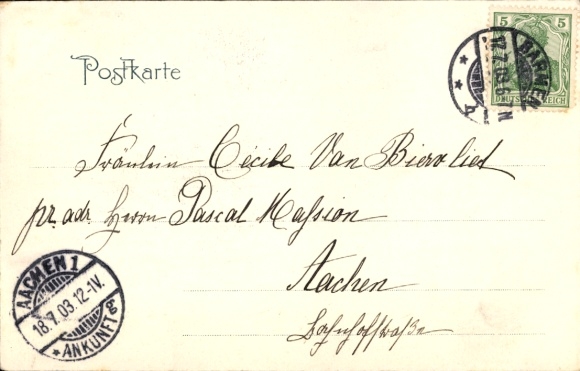 Postkarte
5 5
DEUTSCHES REICH
BARMEN
17.7.03.6-7N
* * h
Fräulein Cécile Van Biervliet
pr. adr. Herrn Pascal Massion
Aachen
Bahnhofstraße
AACHEN 1
18.7.03.12-1V.
* ANKUNFT